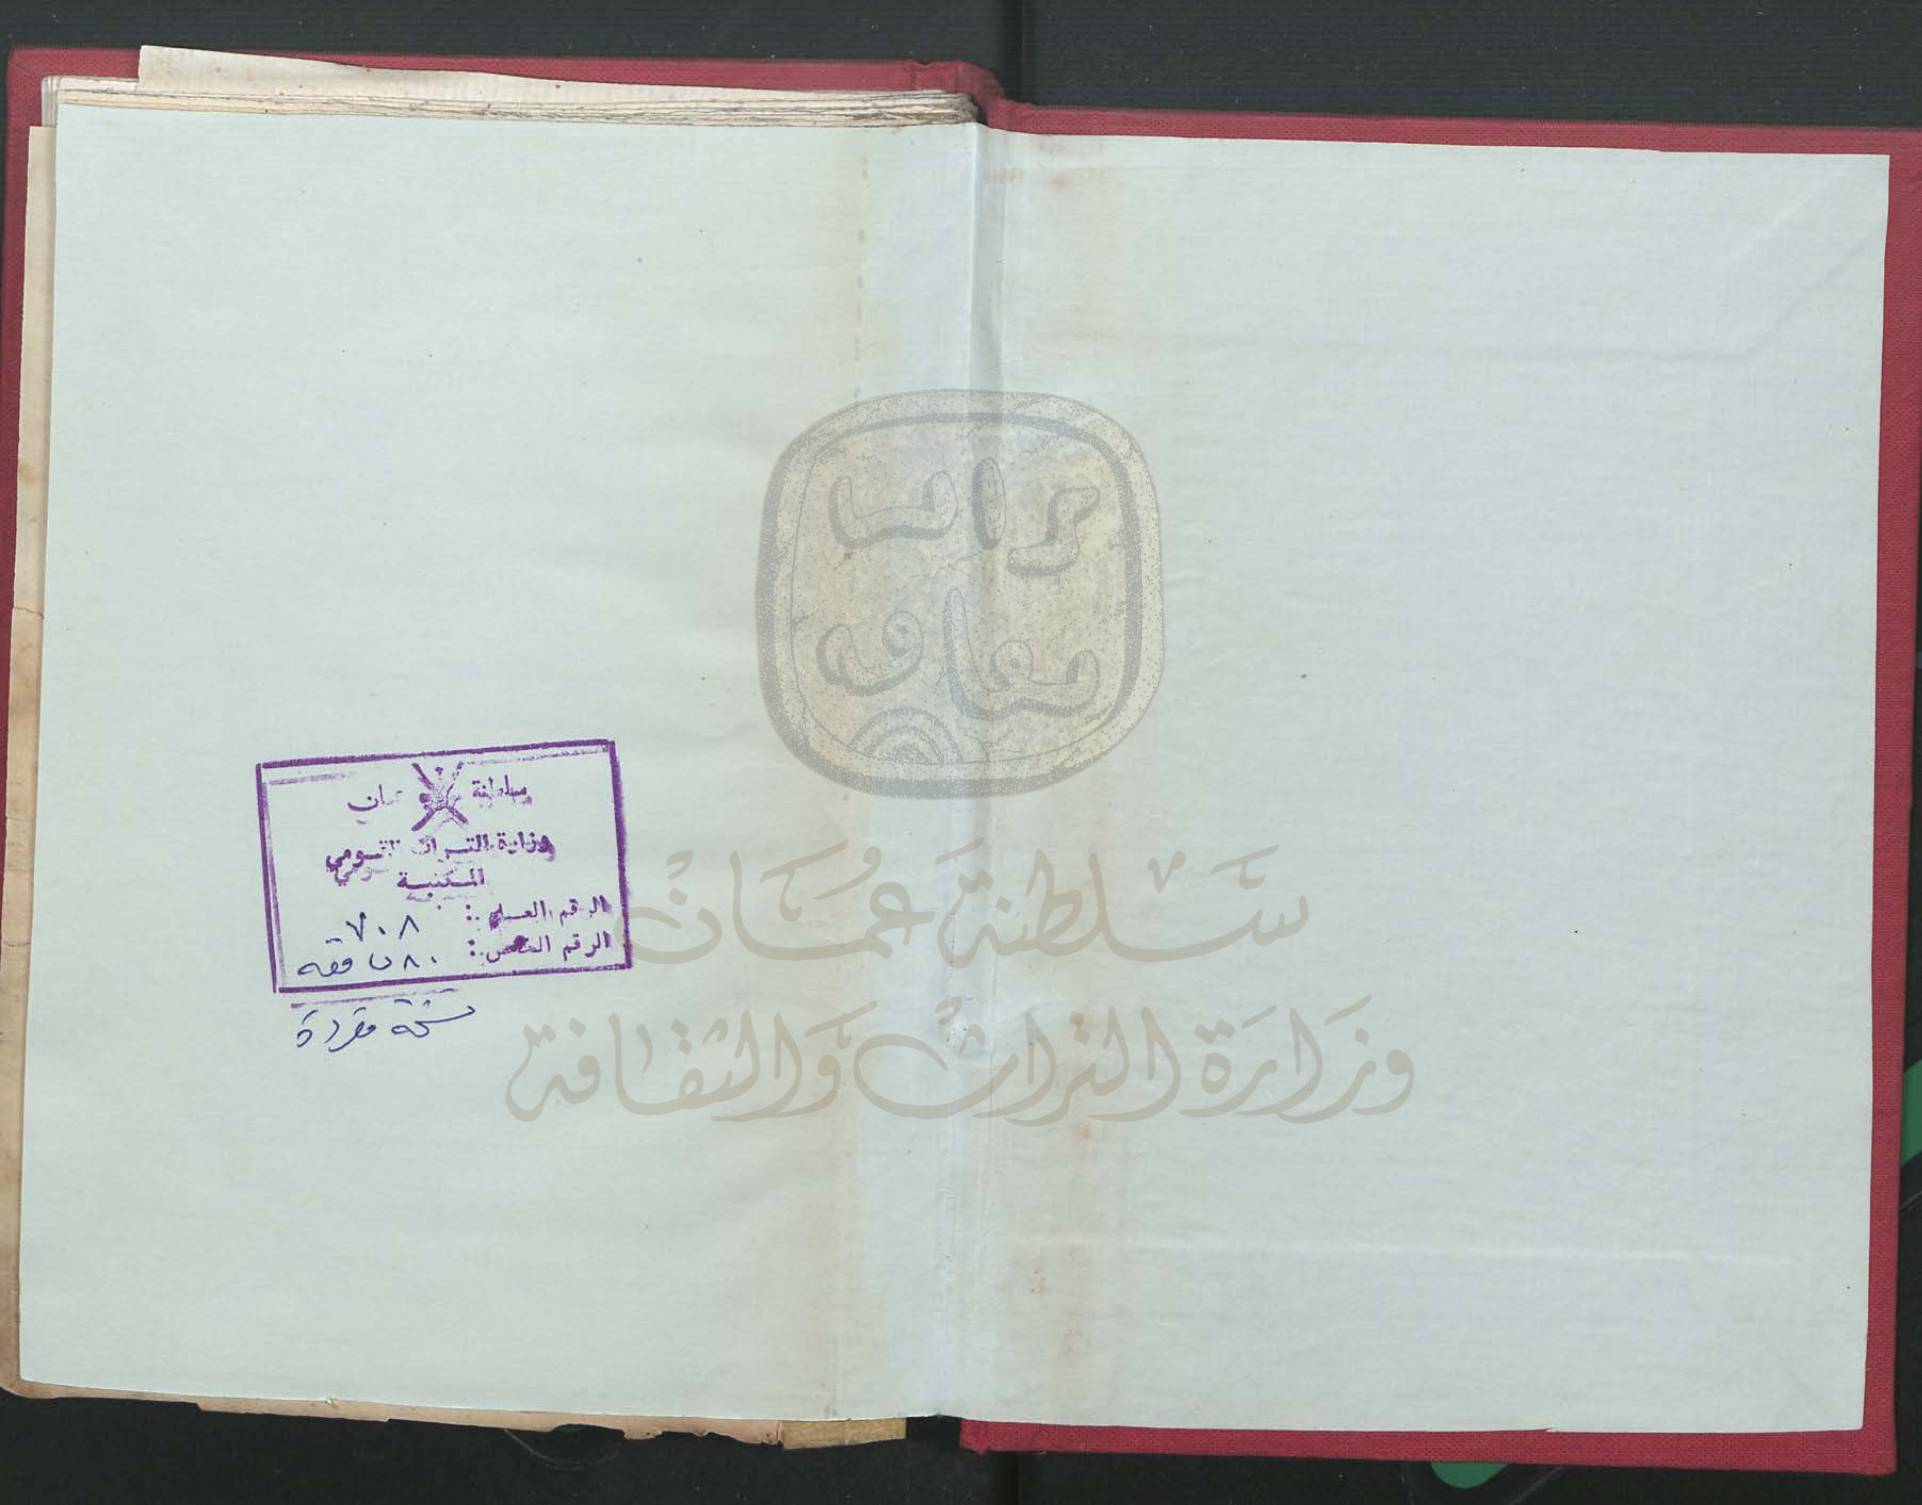 سلطنة عمان
وزارة التراث القومي
المكتبة
الرقم العام: ٧٠٨
الرقم الخاص: ٨٠ فقه
نسخة مفردة
تراث
ثقافة
سلطنة عمان
وزارة التراث والثقافة